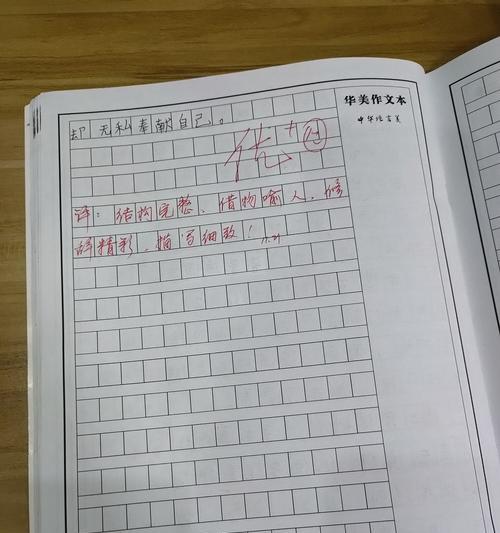 却无私奉献自己。
华美作文本
中华语言美
优+
评：结构完整、借物喻人，修
辞精彩，描写细致！